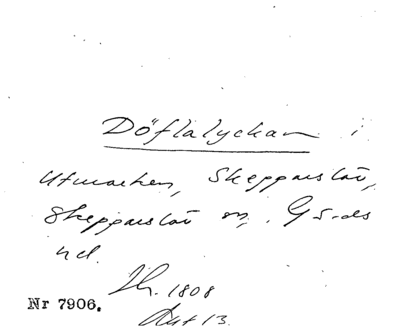 Döflalyckan i
Utmarken, Skepparslöv,
Skepparslöv sn, Gärds
hd.
Lh. 1808
Akt 13.
Nr 7906.